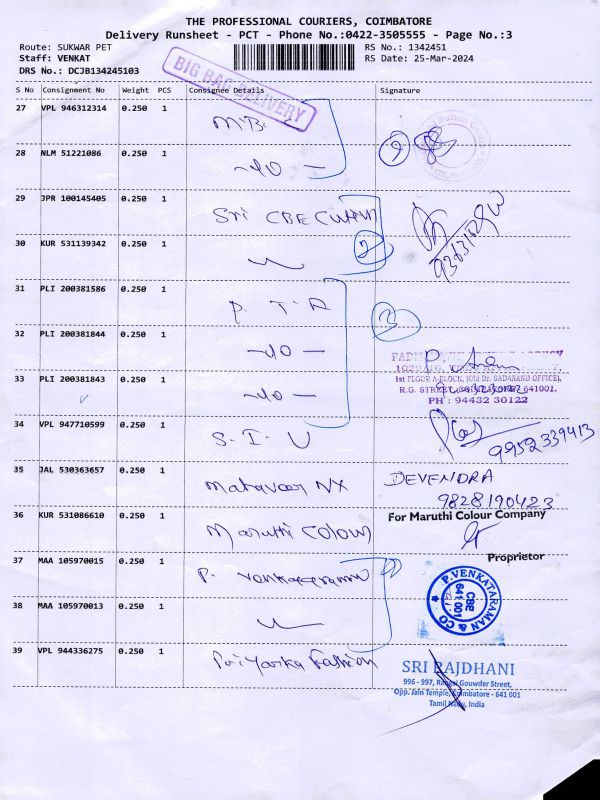 THE PROFESSIONAL COURIERS, COIMBATORE
Delivery Runsheet - PCT - Phone No.:0422-3505555 - Page No.:3
Route: SUKWAR PET
RS No.: 1342451
Staff: VENKAT
RS Date: 25-Mar-2024
DRS No.: DCJB134245103
BIG BAG DELIVERY
S No Consignment No Weight PCS Consignee Details Signature
27 VPL 946312314 0.250 1
28 NLM 51221086 0.250 1 -do-
29 JPR 100145405 0.250 1 Sri CBE
30 KUR 531139342 0.250 1
2
31 PLI 200381586 0.250 1 P. T. A
3
32 PLI 200381844 0.250 1 -do-
33 PLI 200381843 0.250 1 -do-
1st FLOOR A-BLOCK, (Old Dr. SADANAND OFFICE),
R.G. STREET, 641001.
PH : 94432 30122
34 VPL 947710599 0.250 1 S. I. U
9952339413
35 JAL 530363657 0.250 1 Mahaveer NX
DEVENDRA
9828190423
36 KUR 531086610 0.250 1 Maruthi Colour
For Maruthi Colour Company
Proprietor
37 MAA 105970015 0.250 1 P. Venkataraman
P.VENKATARAMAN & CO
CBE
641 001
38 MAA 105970013 0.250 1
39 VPL 944336275 0.250 1 Priyanka Fashion
SRI RAJDHANI
996 - 997, Rangai Gouwder Street,
Opp. Jain Temple, Coimbatore - 641 001
Tamil Nadu, India